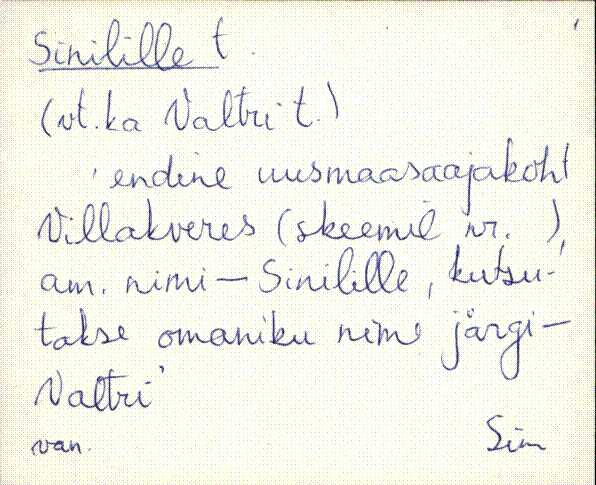 Sinilille t.
(vt. ka Valtri t.)
'endine uusmaasaajakoht
Villakveres (skeemil nr. ),
am. nimi – Sinilille, kutsu-
takse omaniku nime järgi –
Valtri'
van. Sim